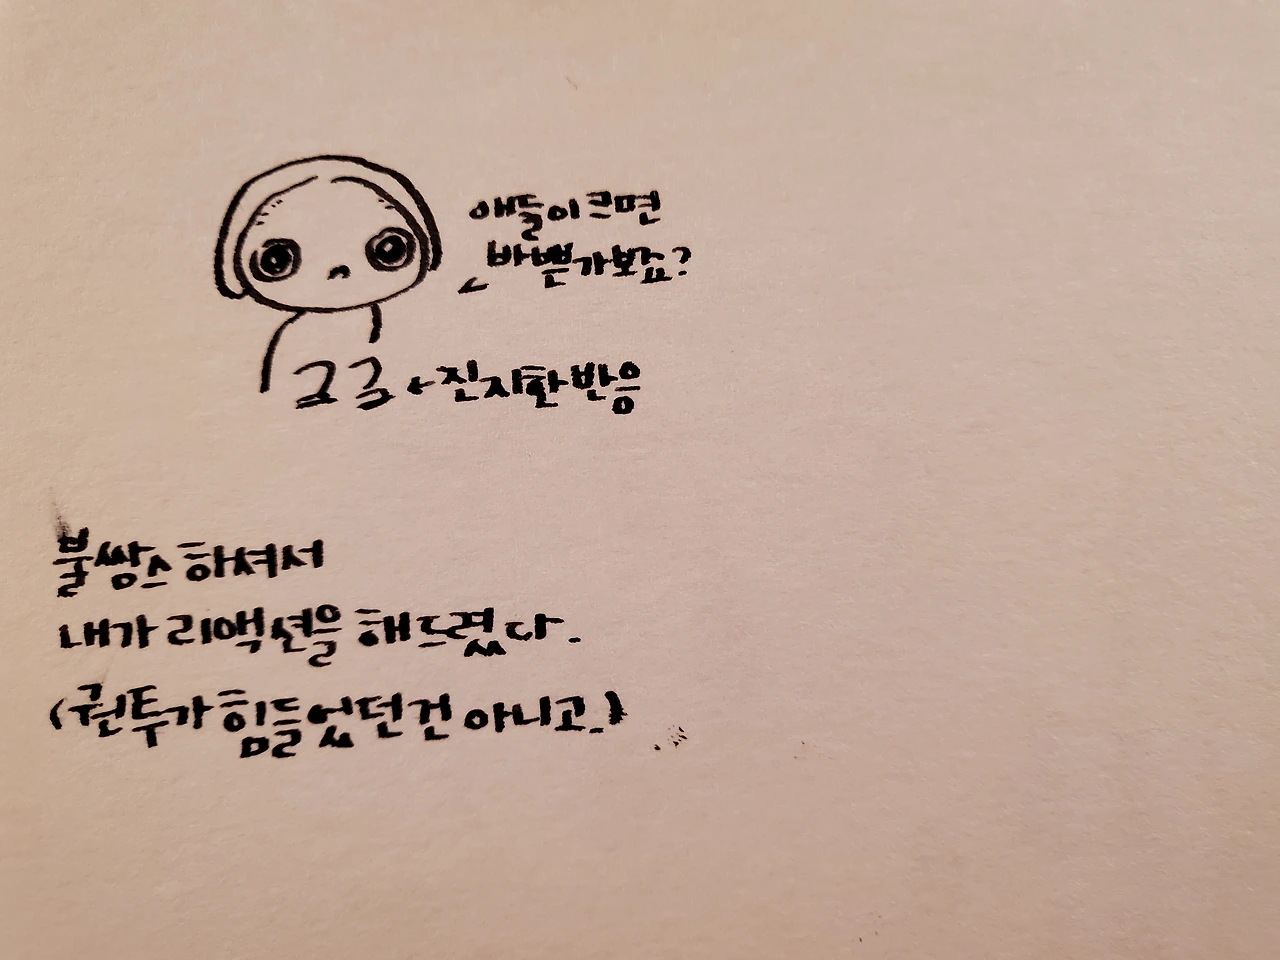 애들이크면
바쁜가봐요?
23 ← 진지한반응
불쌍스 하셔서
내가 리액션을 해드렸다.
(권투가 힘들었던건 아니고.)